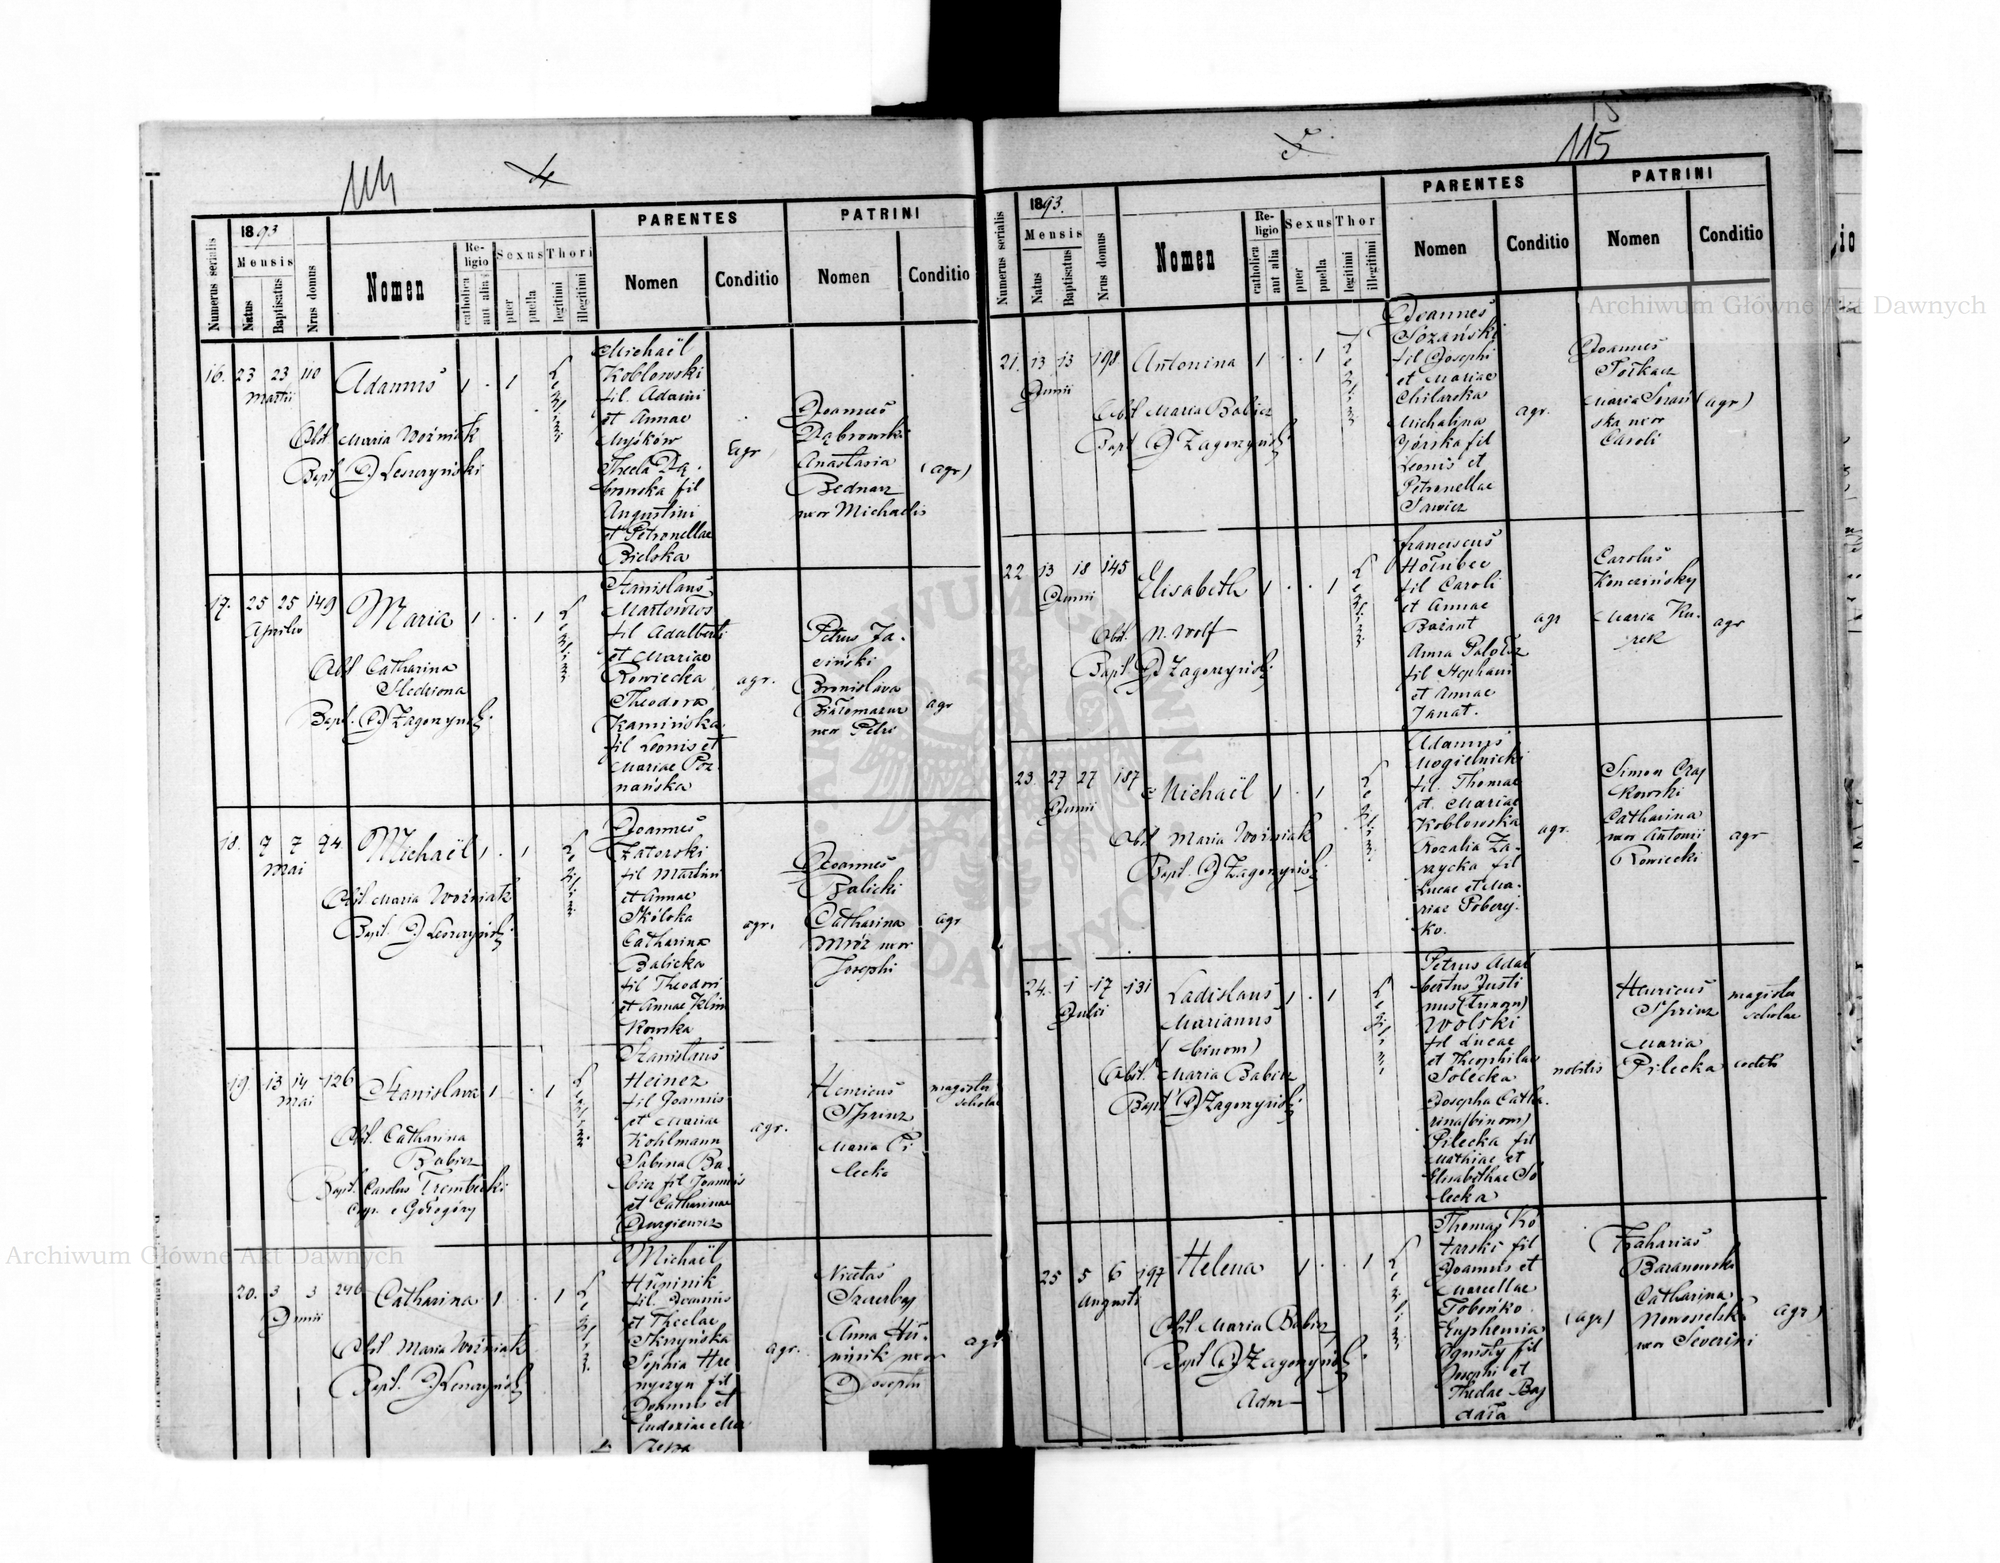 114
4
1893
Mensis
Numerus serialis
Natus
Baptisatus
Nrus domus
Nomen
Religio
catholica
aut alia
Sexus
puer
puella
Thori
legitimi
illegitimi
PARENTES
Nomen
Conditio
PATRINI
Nomen
Conditio
16. 23 23 110
Martii
Adamus 1 . 1
Obst Maria Woźniak
Bapt D Leszczyński
Legitimi
Michaël
Koblowski
fil. Adami
et Annae
Myśków
Thecla Dą-
browska fil
Augustini
et Petronellae
Bielska
agr
Joannes
Dąbrowski
Anastasia
Bednarz
uxor Michaelis
(agr)
17. 25 25 149
Aprilis
Maria 1 . . 1
Obst Catharina
Śledziona
Bapt. D Zagórzyński
Stanislaus
Martowłos
fil Adalberti
et Mariae
Rowiecka
Theodora
Kamińska
fil Leonis et
Mariae Poz-
nańska
agr.
Petrus Ja-
ciński
Bronislava
Białomazur
uxor Petri
agr
18. 7 7 74
Mai
Michaël 1 . 1
Obst Maria Woźniak
Bapt. D Leszczyński
Joannes
Zatorski
fil Martini
et Annae
Skólska
Catharina
Balicka
fil Theodori
et Annae Klim
kowska
agr.
Joannes
Balicki
Catharina
Mróz uxor
Josephi
agr
19. 13 14 126
Mai
Stanislava 1 . . 1
Obst. Catharina
Babicz
Bapt. Carolus Trembecki
Coop. e Gołogóry
Stanislaus
Heinez
fil Joannis
et Mariae
Kohlmann
Sabina Ba-
bicz fil Joannis
et Catharinae
Jurgiewicz
agr.
Henricus
Sprinz
Maria Pi-
lecka
magister
scholae
20. 3 3 246
Junii
Catharina 1 . . 1
Obst Maria Woźniak
Bapt. D Leszczyński
Michaël
Hupinik
fil. Joannis
et Theclae
Skrzyńska
Sophia Hre
nyczyn fil
Joannis et
Eudoxiae
agr.
Nicetas
Szczerbaj
Anna
uxor
Josephi
agr
115
5
1893.
Mensis
Numerus serialis
Natus
Baptisatus
Nrus domus
Nomen
Religio
catholica
aut alia
Sexus
puer
puella
Thor
legitimi
illegitimi
PARENTES
Nomen
Conditio
PATRINI
Nomen
Conditio
21. 13 13 198
Junii
Antonina 1 . . 1
Obst Maria Babicz
Bapt D Zagórzyński
Joannes
Sozański
fil Josephi
et Mariae
Chilarska
Michalina
Górska fil
Leonis et
Petronellae
Sawicz
agr.
Joannes
Tołkacz
Maria Sozań
ska uxor
Caroli
(agr)
22 13 18 145
Junii
Elisabeth 1 . . 1
Obst. N. Wolf
Bapt. D Zagórzyński
Franciscus
Hołubec
fil Caroli
et Annae
Bażant
Anna
fil Stephani
et Annae
Janat.
agr
Carolus
Konczińsky
Maria Ku-
rek
agr
23. 27 27 187
Junii
Michaël 1 . 1
Obst Maria Woźniak
Bapt. D Zagórzyński
Adamus
Mogielnicki
fil. Thomae
et Mariae
Koblowska
Rozalia Za-
rzycka fil
Lucae et Ma-
riae Poberej-
ko.
agr.
Simon Czaj
kowski
Catharina
uxor Antonii
Rowiecki
agr
24. 1 17 131
Julii
Ladislaus 1 . 1
Marianus
(binom)
Obst. Maria Babicz
Bapt D Zagórzyński
Petrus Adal
bertus Justi
nus (trinom)
Wolski
fil Lucae
et Theophilae
Solecka
Josepha Catha-
rina (binom)
Pilecka fil
Mathiae et
Elisabethae So
lecka
nobilis
Henricus
Sprinz
Maria
Pilecka
magister
scholae
coelebs
25 5 6 197
Augusti
Helena 1 . . 1
Obst Maria Babicz
Bapt D Zagórzyński
Adm
Thomas Ko
tarski fil
Joannis et
Marcellae
Tobońko
Euphemia
Ognisty fil
Josephi et
Theclae Baj
dała
(agr)
Zaharias
Baranowski
Catharina
Nowosielska
uxor Severini
agr)
Archiwum Główne Akt Dawnych
Archiwum Główne Akt Dawnych